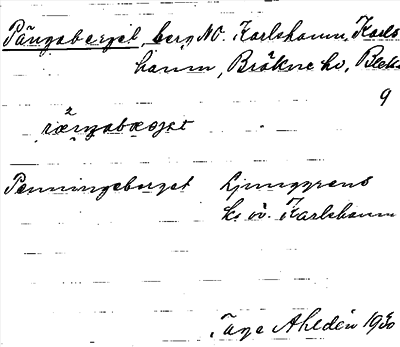 Pängaberget, berg NO. Karlshamn, Karls
hamn, Bräkne hd, Blek
9
Penningeberget Ljunggrens
k. öv. Karlshamn
Tage Ahldén 1930